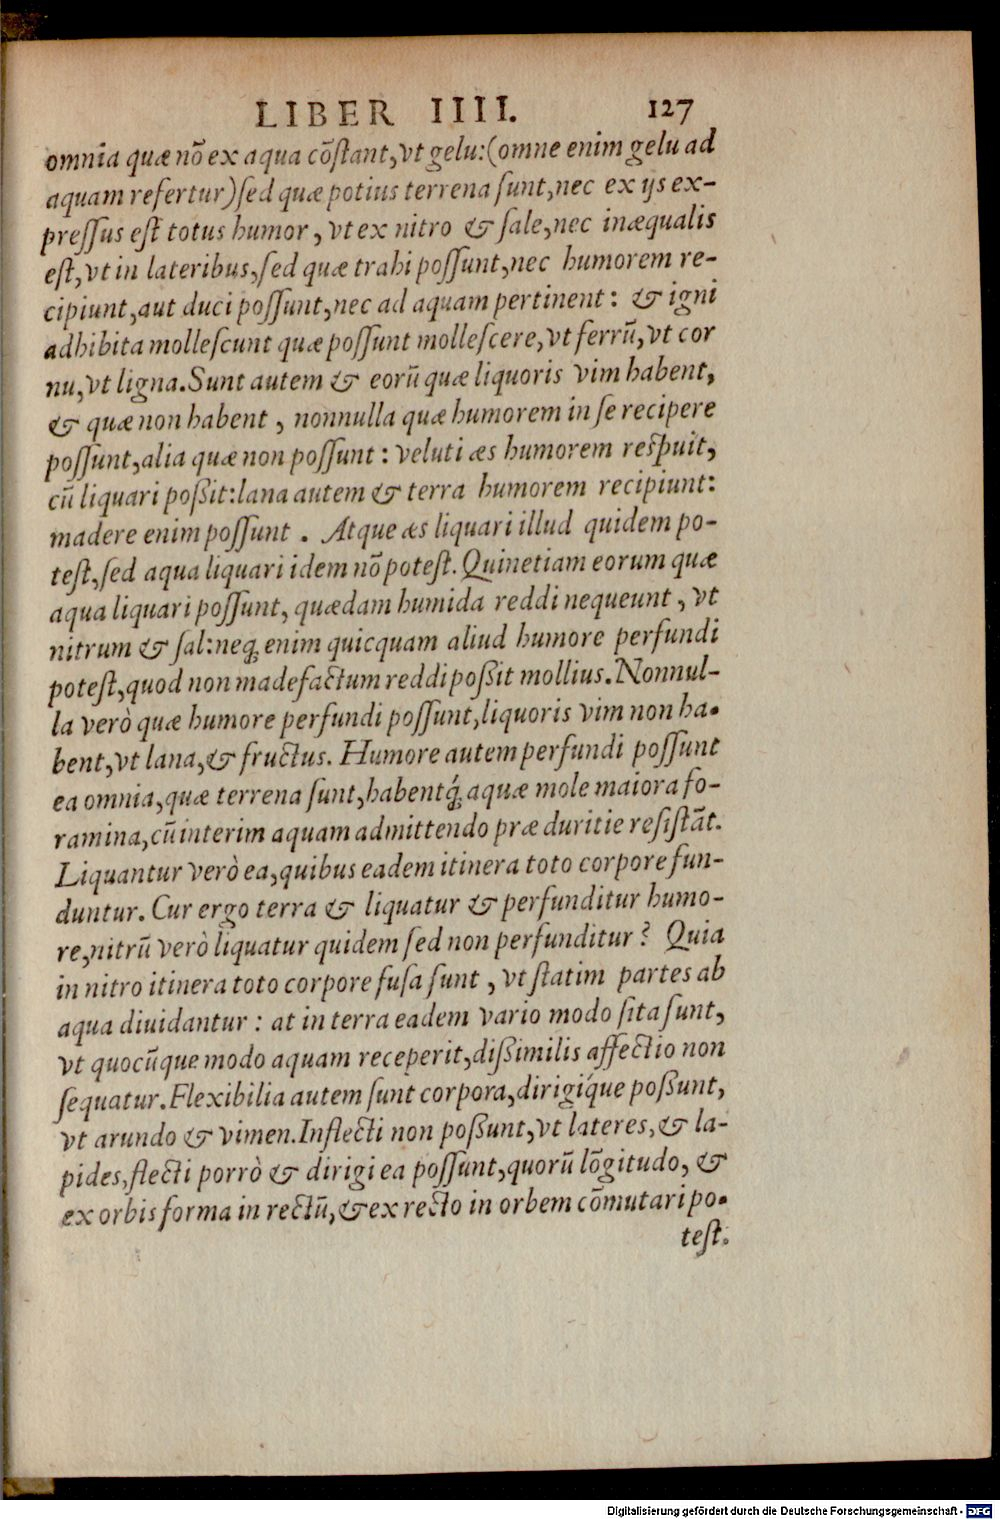 LIBER IIII. 127
omnia quæ nõ ex aqua cõſtant, vt gelu:(omne enim gelu ad
aquam refertur)ſed quæ potius terrena ſunt, nec ex ijs ex-
preſſus eſt totus humor, vt ex nitro & ſale, nec inæqualis
eſt, vt in lateribus, ſed quæ trahi poſſunt, nec humorem re-
cipiunt, aut duci poſſunt, nec ad aquam pertinent: & igni
adhibita molleſcunt quæ poſſunt molleſcere, vt ferrũ, vt cor
nu, vt ligna. Sunt autem & eorũ quæ liquoris vim habent,
& quæ non habent, nonnulla quæ humorem in ſe recipere
poſſunt, alia quæ non poſſunt: veluti æs humorem reſpuit,
cũ liquari poßit: lana autem & terra humorem recipiunt:
madere enim poſſunt. Atque æs liquari illud quidem po-
teſt, ſed aqua liquari idem nõ poteſt. Quinetiam eorum quæ
aqua liquari poſſunt, quædam humida reddi nequeunt, vt
nitrum & ſal: neq; enim quicquam aliud humore perfundi
poteſt, quod non madefactum reddi poßit mollius. Nonnul-
la verò quæ humore perfundi poſſunt, liquoris vim non ha-
bent, vt lana, & fructus. Humore autem perfundi poſſunt
ea omnia, quæ terrena ſunt, habentq́; aquæ mole maiora fo-
ramina, cũ interim aquam admittendo præ duritie reſiſtãt.
Liquantur verò ea, quibus eadem itinera toto corpore fun-
duntur. Cur ergo terra & liquatur & perfunditur humo-
re, nitrũ verò liquatur quidem ſed non perfunditur? Quia
in nitro itinera toto corpore fuſa ſunt, vt ſtatim partes ab
aqua diuidantur: at in terra eadem vario modo ſita ſunt,
vt quocũque modo aquam receperit, dißimilis affectio non
ſequatur. Flexibilia autem ſunt corpora, dirigíque poßunt,
vt arundo & vimen. Inflecti non poßunt, vt lateres, & la-
pides, flecti porrò & dirigi ea poſſunt, quorũ lõgitudo, &
ex orbis forma in rectũ, & ex recto in orbem cõmutari po-
teſt.
Digitalisierung gefördert durch die Deutsche Forschungsgemeinschaft - DFG